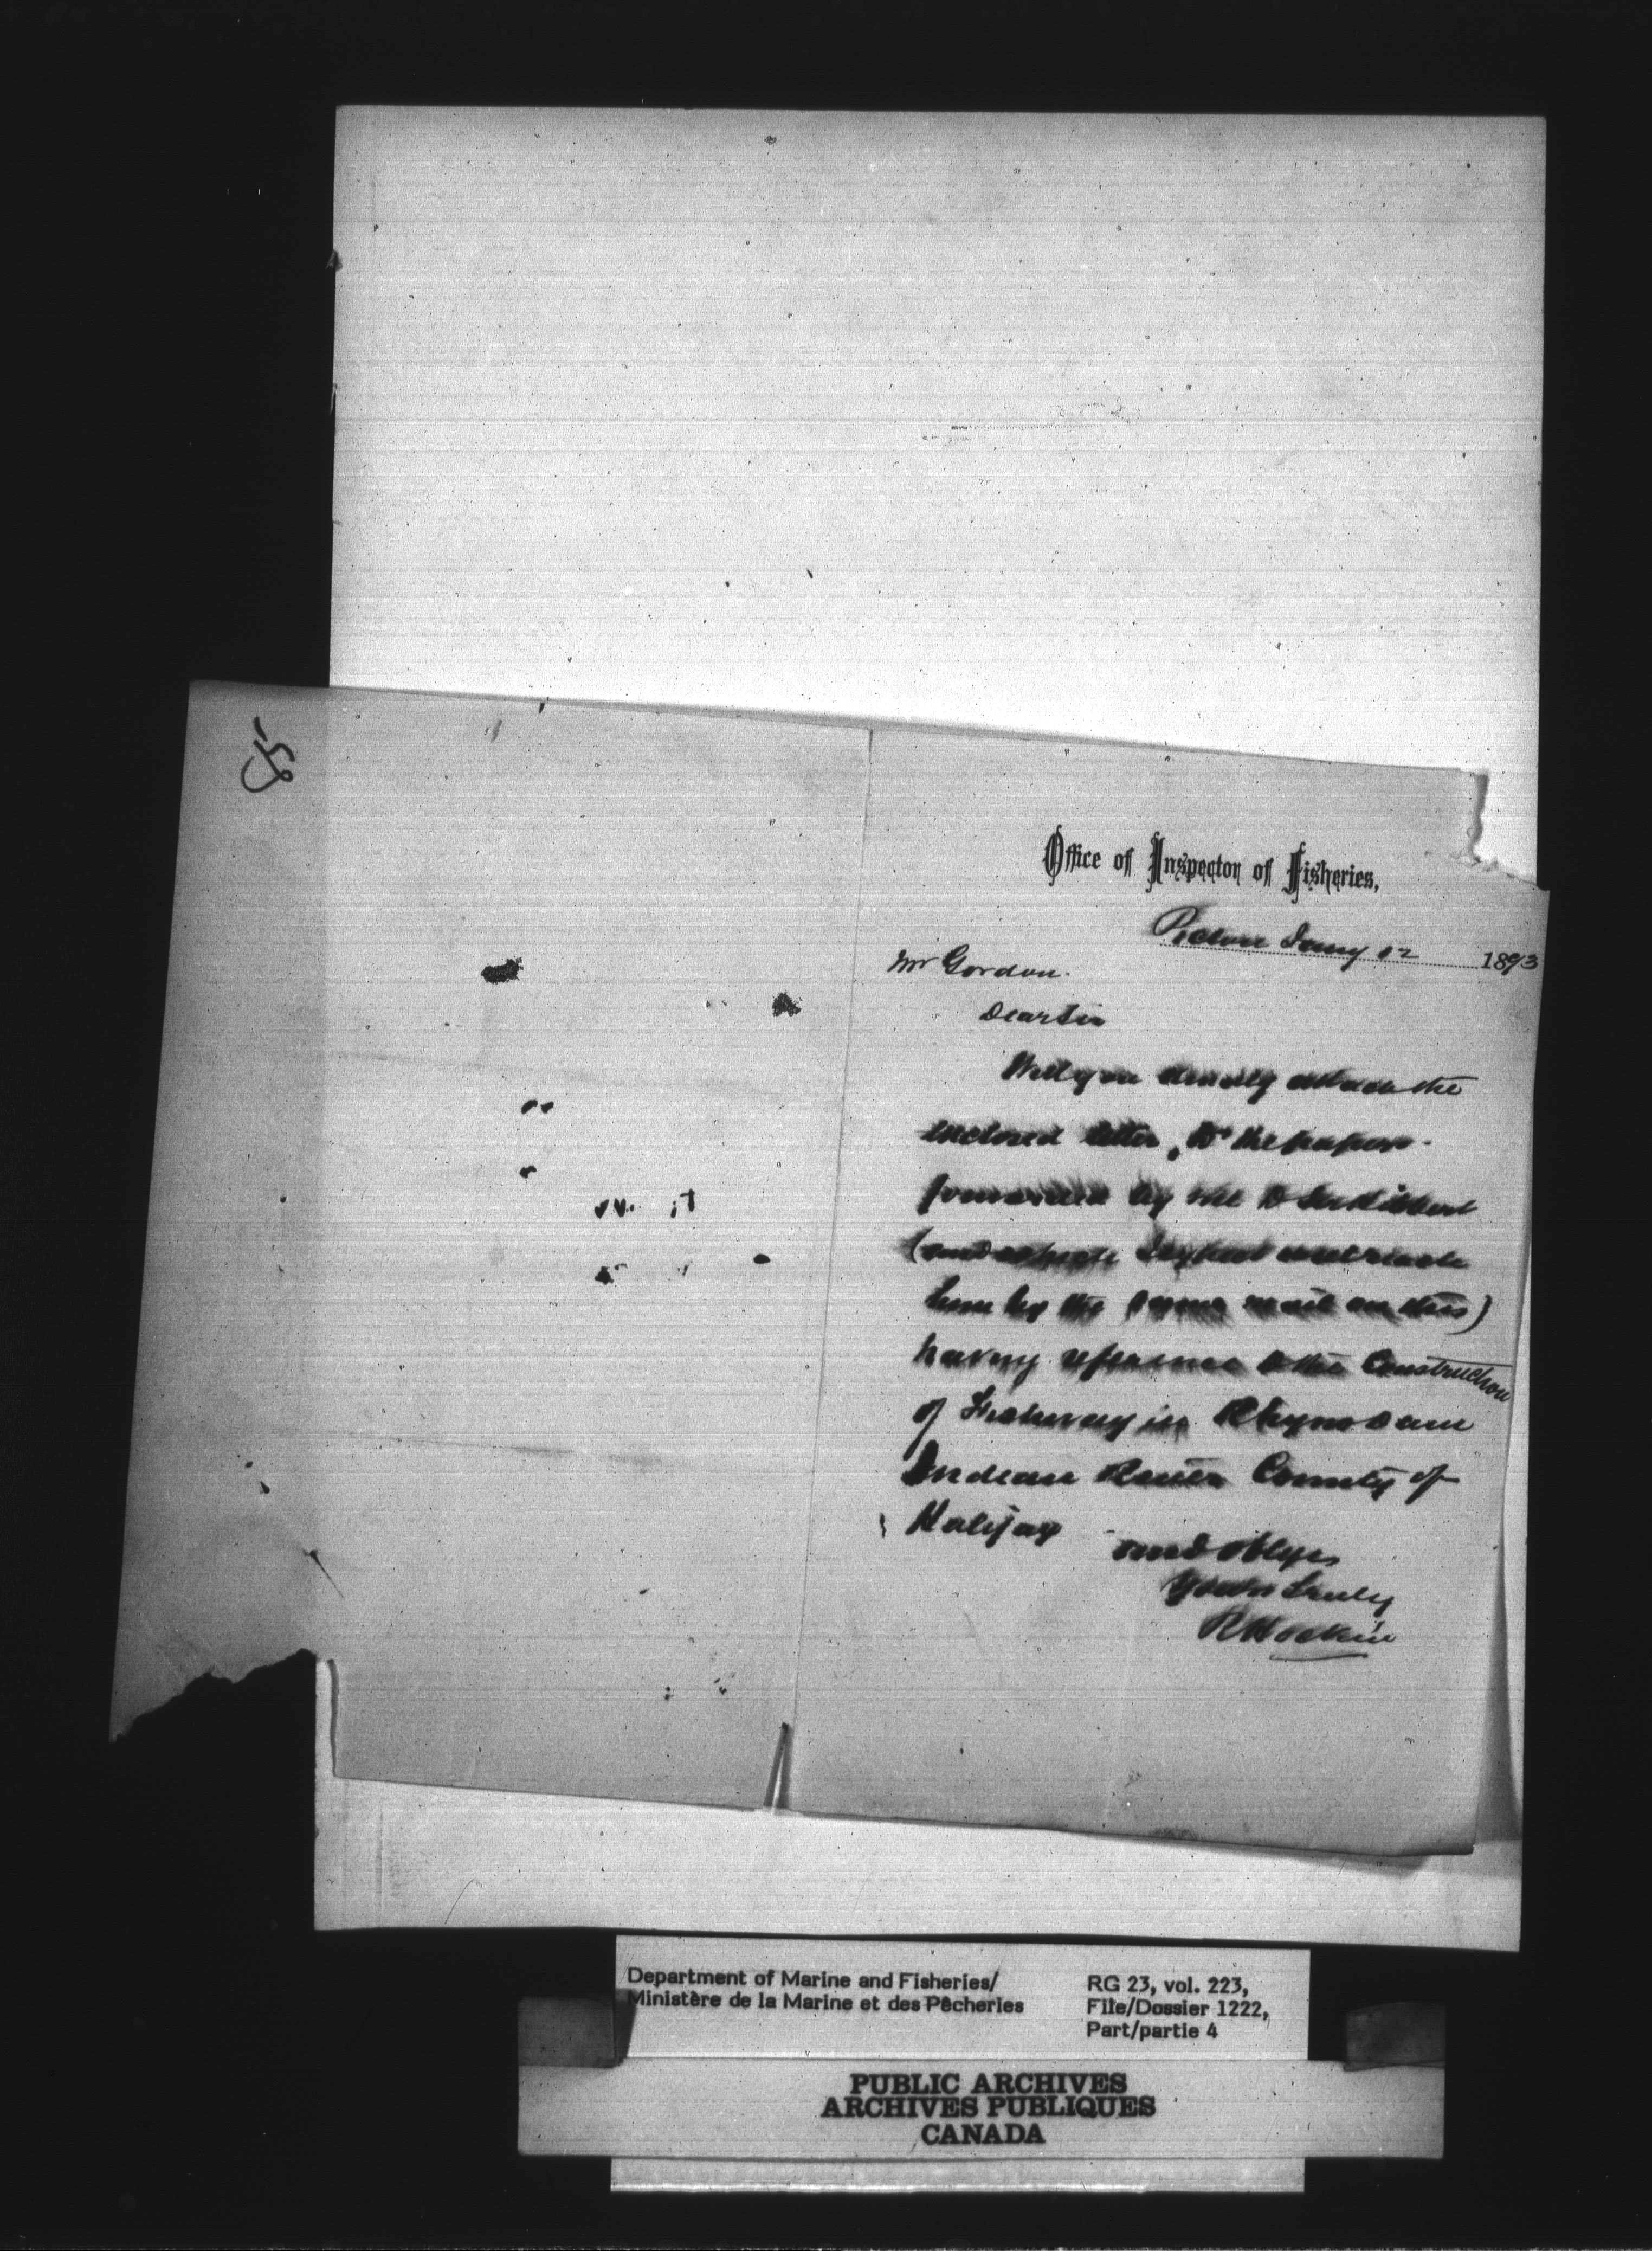 85
Office of Inspector of Fisheries,
Pictou Jany 12 1893
Mr Gordon.
Dear Sir
Will you kindly attach the
enclosed letter, to the papers
forwarded by me to Sir Hibbert
(and which I expect will reach
him by the same mail as this)
having reference to the Construction
of Fishway in Rhyno Dam
Indian River County of
Halifax
and oblige
Yours truly
R Hockin
Department of Marine and Fisheries/
Ministère de la Marine et des Pêcheries
RG 23, vol. 223,
File/Dossier 1222,
Part/partie 4
PUBLIC ARCHIVES
ARCHIVES PUBLIQUES
CANADA